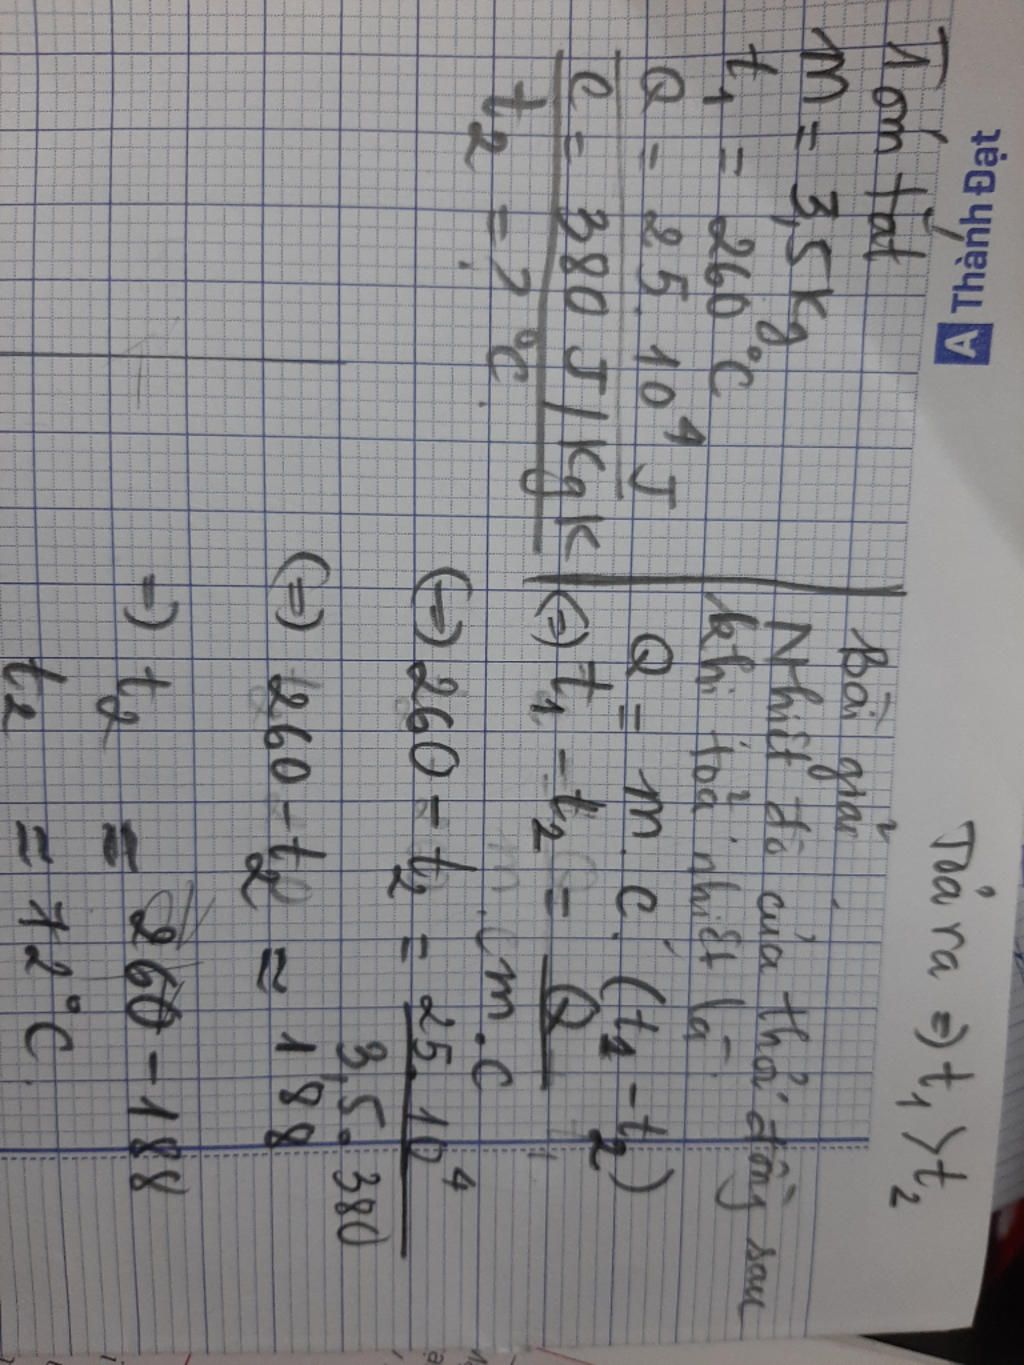 A Thành Đạt
Toả ra => t₁ > t₂
Tóm tắt
m = 3,5 kg
t₁ = 260°C
Q = 25.10⁴ J
c = 380 J/kgK
t₂ = ? °C.
Bài giải
Nhiệt độ của thỏi đồng sau
khi toả nhiệt là:
Q = m.c.(t₁ - t₂)
(=) t₁ - t₂ = Q
m.c
(=) 260 - t₂ = 25.10⁴
3,5.380
(=) 260 - t₂ = 188
=) t₂ = 260 - 188
t₂ = 72°C.